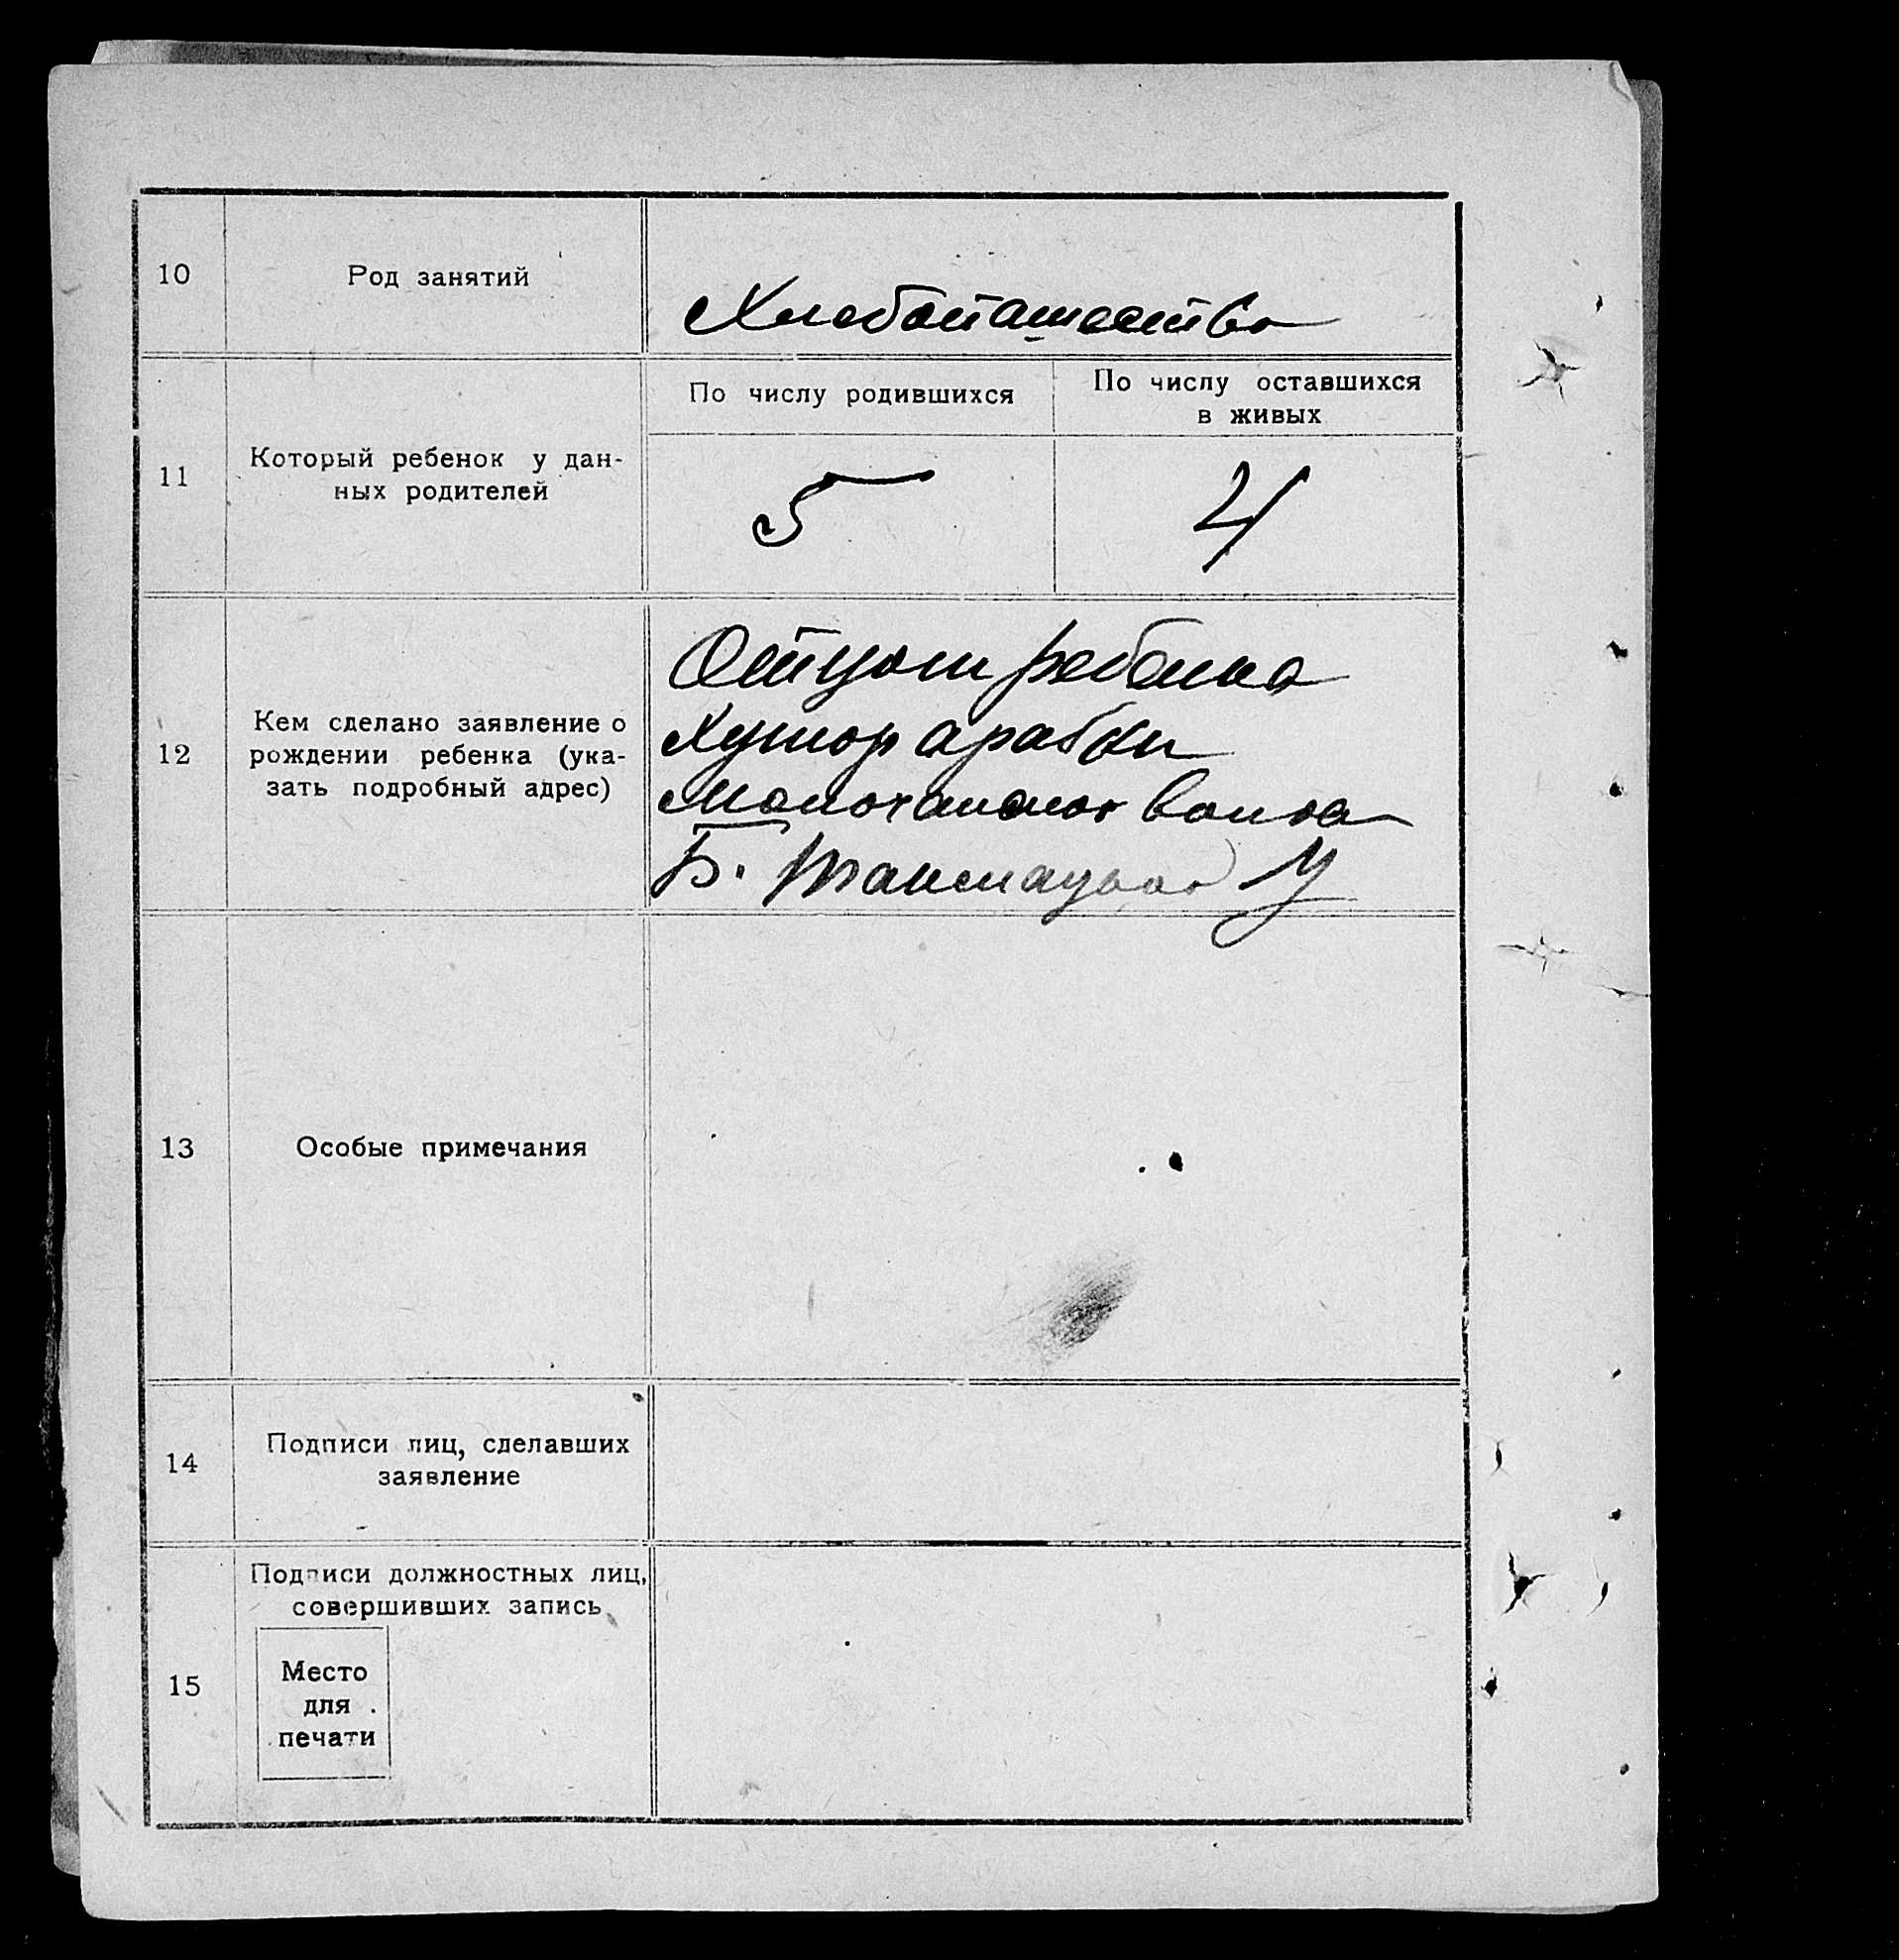 10
Род занятий
Хлебопашество
11
Который ребенок у дан-
ных родителей
По числу родившихся
По числу оставшихся
в живых
5
4
12
Кем сделано заявление о
рождении ребенка (ука-
зать подробный адрес)
Отцом ребенка
Хутор
Б. Токмацкого У
13
Особые примечания
14
Подписи лиц, сделавших
заявление
15
Подписи должностных лиц,
совершивших запись
Место
для
печати